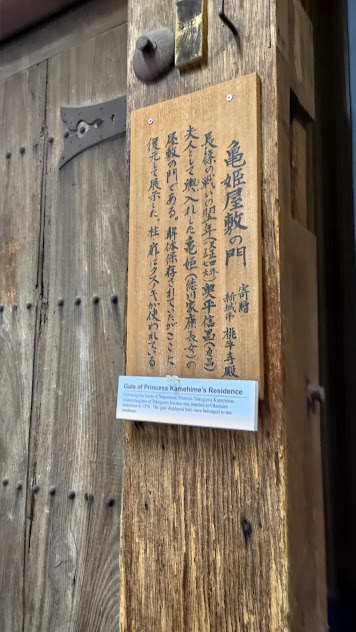 亀姫屋敷の門
寄贈
新城市 桃牛寺殿
長篠の戦いの翌年 奥平信昌(貞昌)
夫人として輿入れした亀姫(徳川家康長女)の
屋敷の門である。解体保存されていたがここに
復元して展示した。柱、扉 が使われている
Gate of Princess Kamehime's Residence
Following the battle of Nagashino, Princess Tokugawa Kamehime
daughter of Tokugawa Ieyasu) was married to Okudaira
Nobumasa in 1576. The gate displayed here once belonged to her
residence.